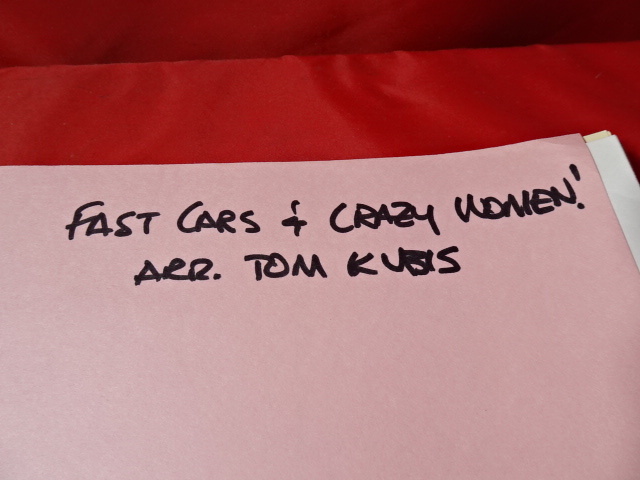 FAST CARS & CRAZY WOMEN!
ARR. TOM KUBIS